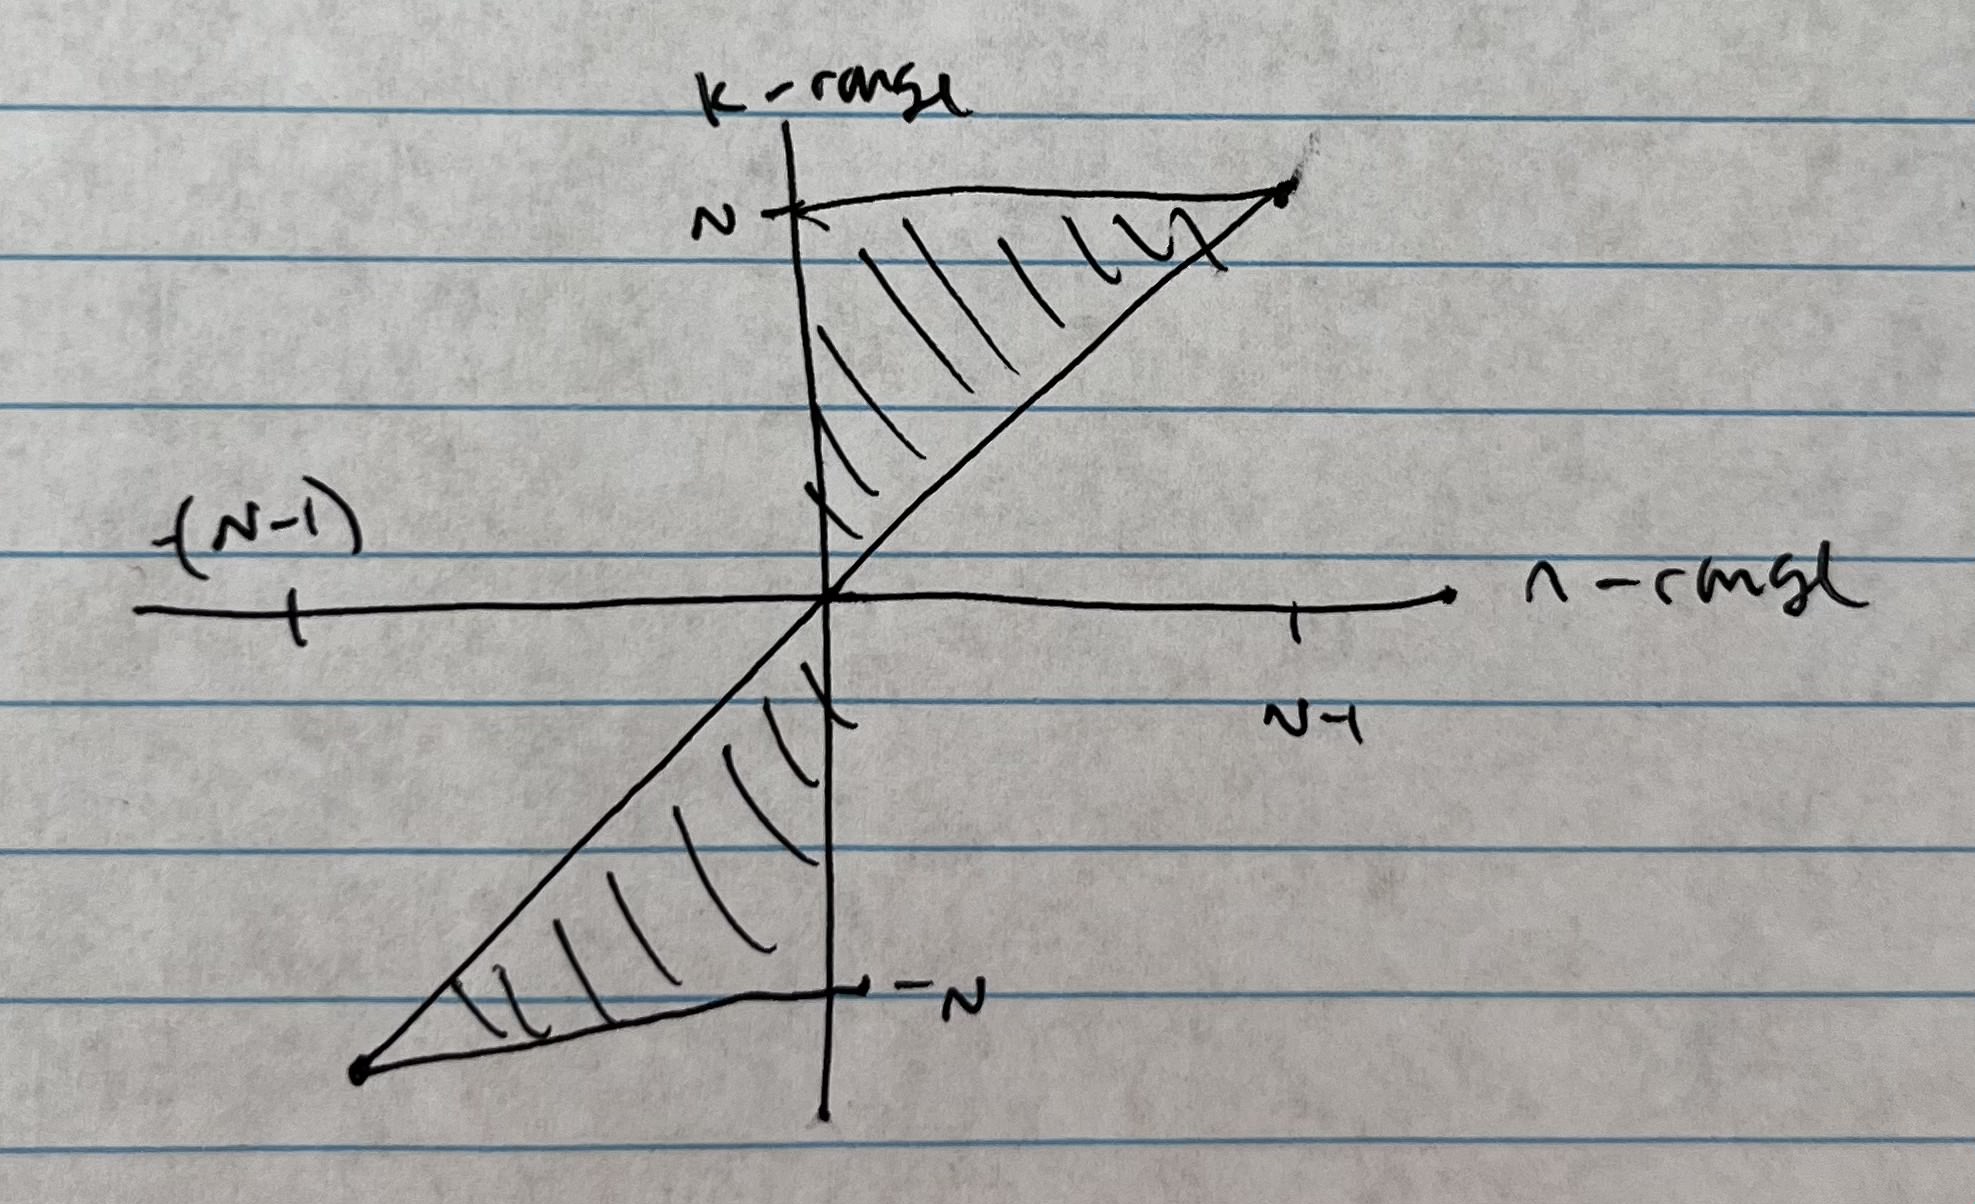 k-range
N
-(N-1)
n-range
N-1
-N